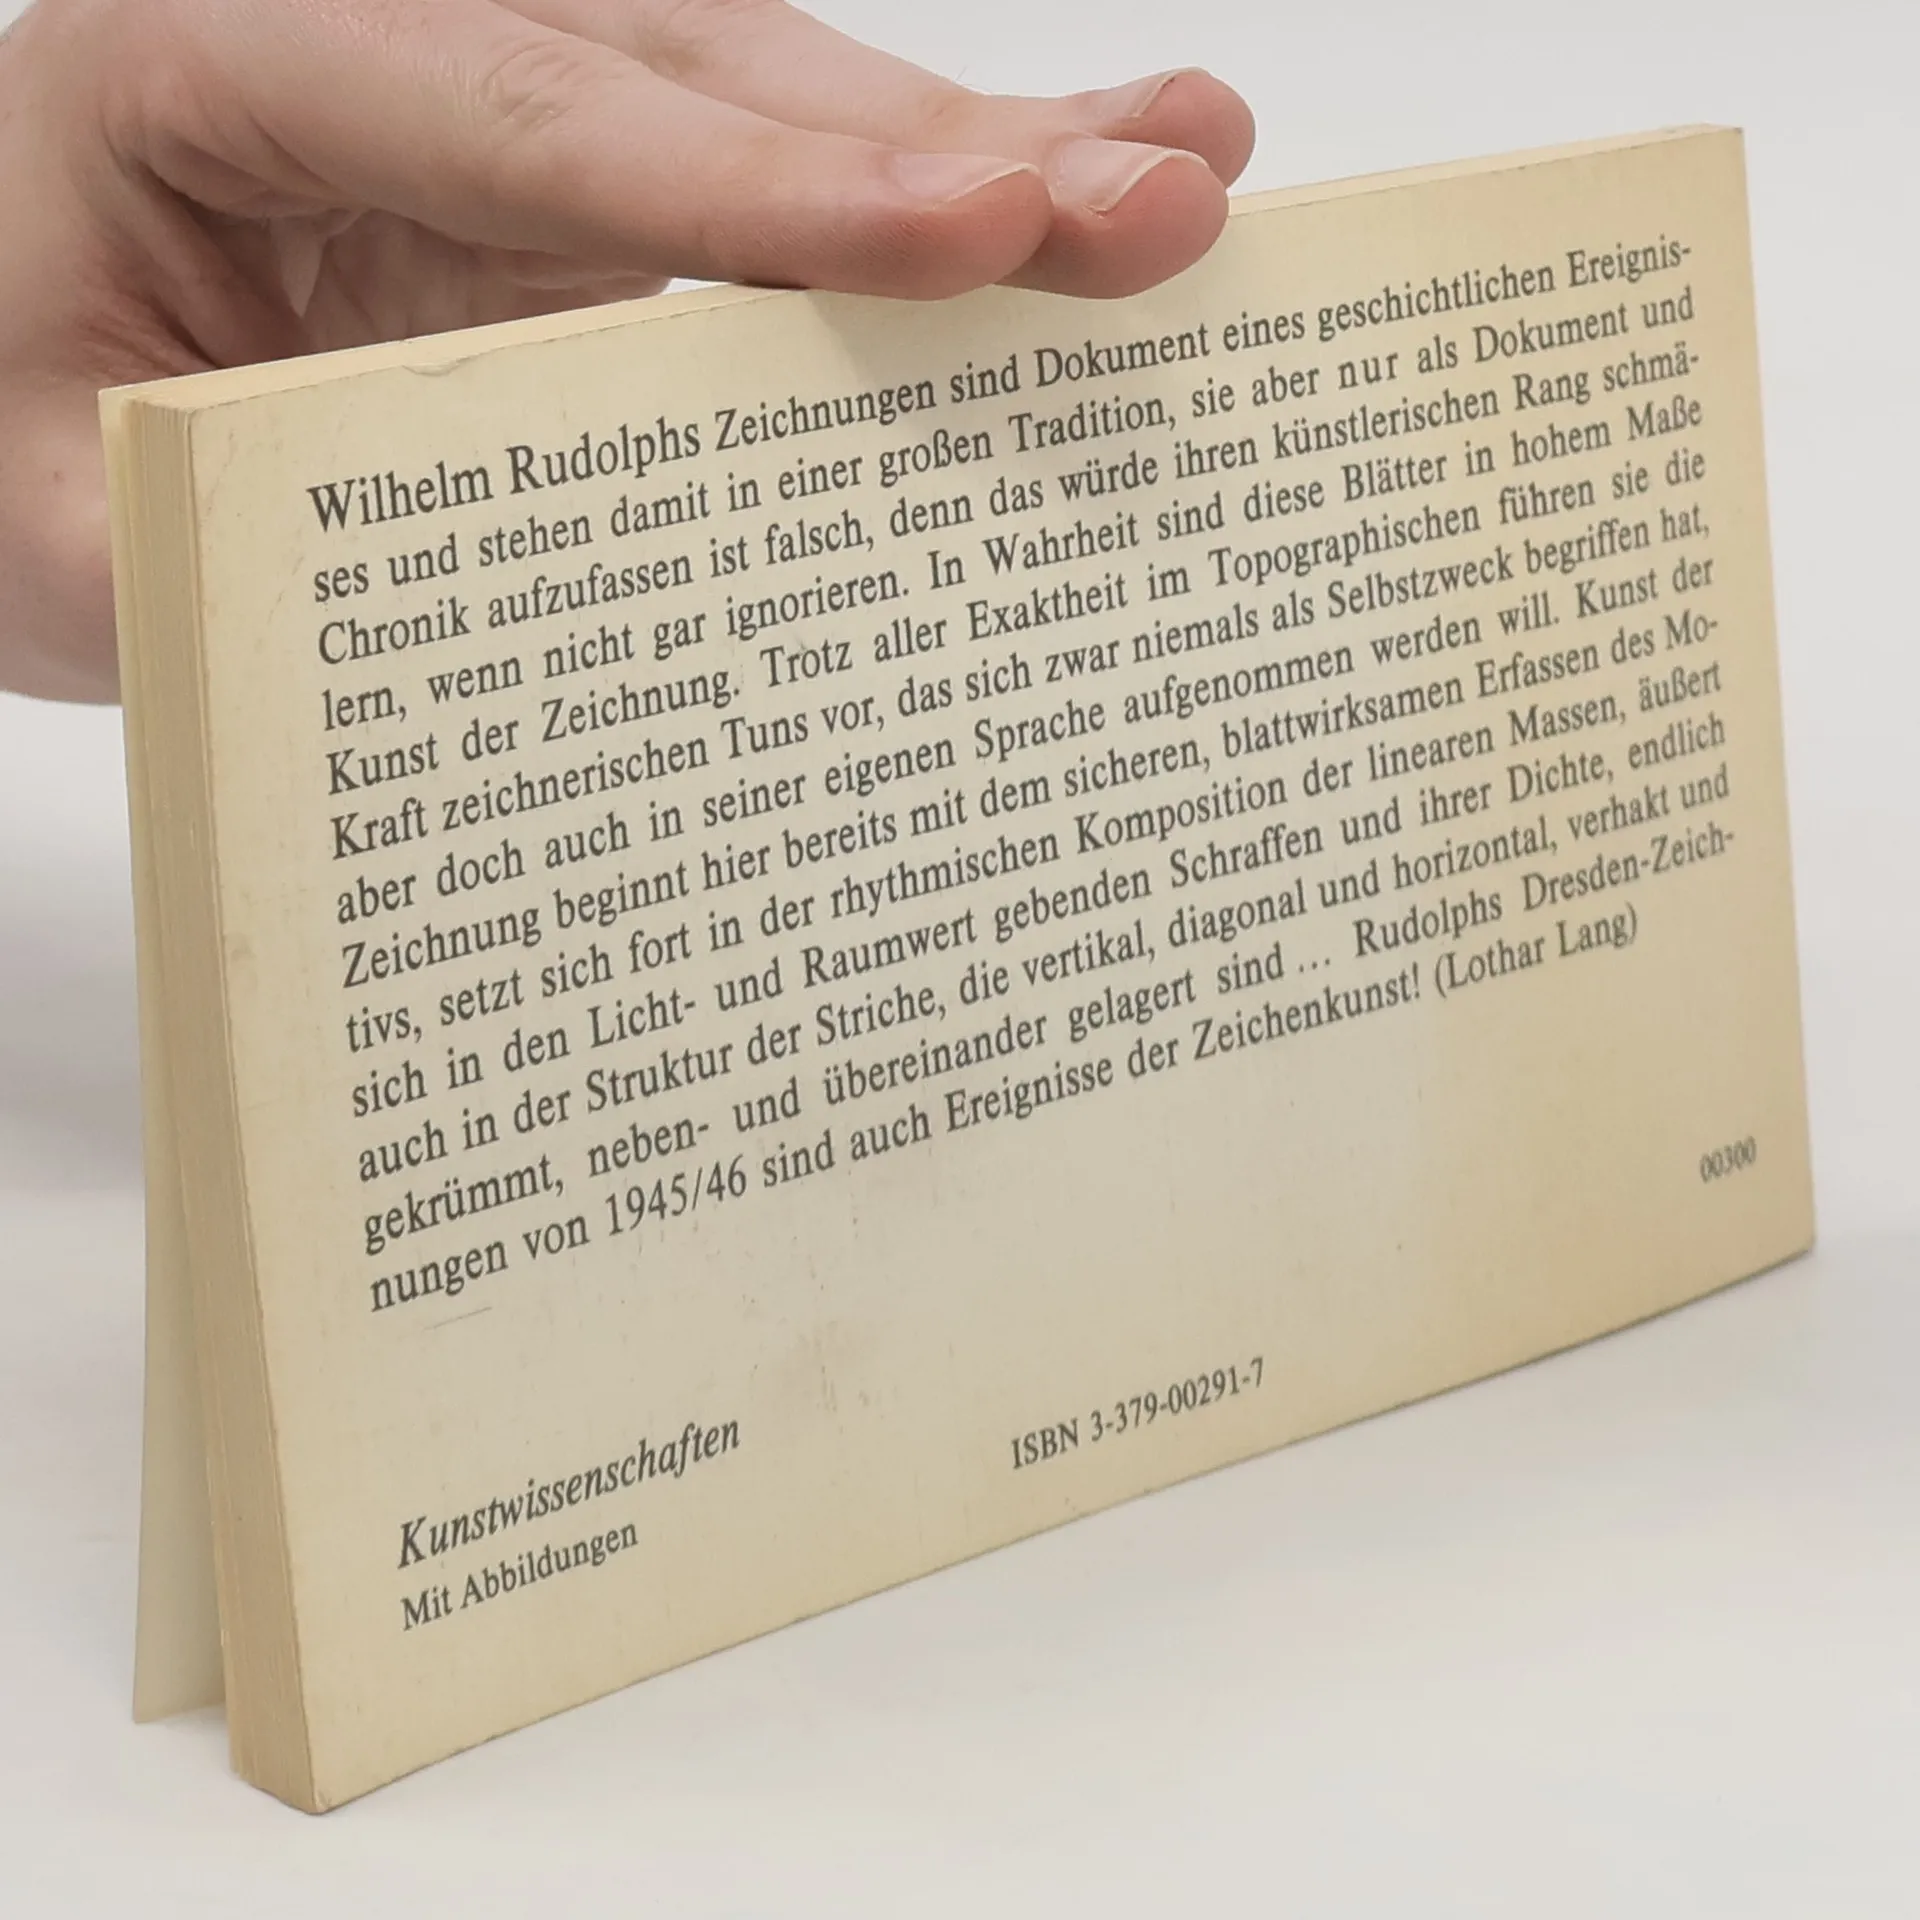 Wilhelm Rudolphs Zeichnungen sind Dokument eines geschichtlichen Ereignis-
ses und stehen damit in einer großen Tradition, sie aber nur als Dokument und
Chronik aufzufassen ist falsch, denn das würde ihren künstlerischen Rang schmä-
lern, wenn nicht gar ignorieren. In Wahrheit sind diese Blätter in hohem Maße
Kunst der Zeichnung. Trotz aller Exaktheit im Topographischen führen sie die
Kraft zeichnerischen Tuns vor, das sich zwar niemals als Selbstzweck begriffen hat,
aber doch auch in seiner eigenen Sprache aufgenommen werden will. Kunst der
Zeichnung beginnt hier bereits mit dem sicheren, blattwirksamen Erfassen des Mo-
tivs, setzt sich fort in der rhythmischen Komposition der linearen Massen, äußert
sich in den Licht- und Raumwert gebenden Schraffen und ihrer Dichte, endlich
auch in der Struktur der Striche, die vertikal, diagonal und horizontal, verhakt und
gekrümmt, neben- und übereinander gelagert sind ... Rudolphs Dresden-Zeich-
nungen von 1945/46 sind auch Ereignisse der Zeichenkunst! (Lothar Lang)
00300
Kunstwissenschaften
Mit Abbildungen
ISBN 3-379-00291-7